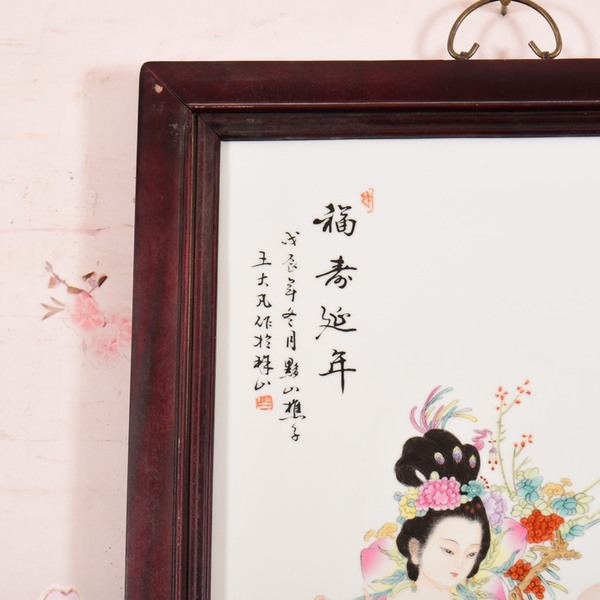 福寿延年
戊辰年冬月黟山樵子
王大凡作於珠山